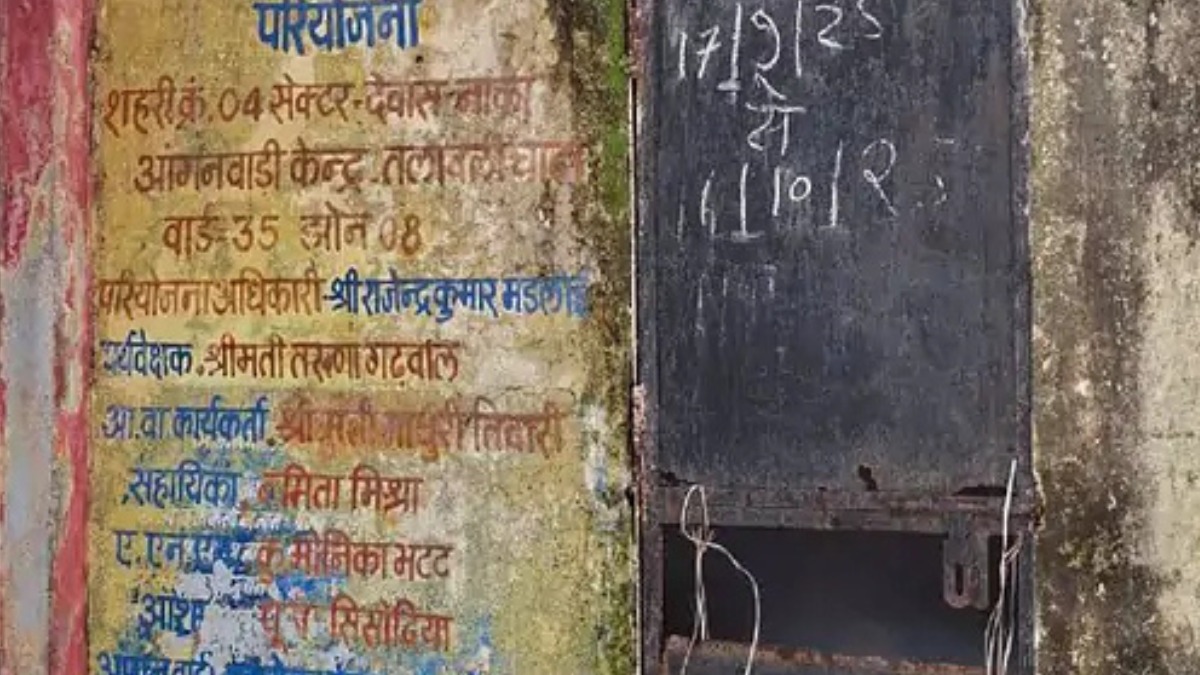 परियोजना
शहरी क्रं. 04 सेक्टर-देवास-नाका
आंगनवाडी केन्द्र.
वार्ड-35 झोन 08
परियोजना अधिकारी-श्री राजेन्द्र कुमार
पर्यवेक्षक. श्रीमती तरूणा गढवाल
आ.वा कार्यकर्ता. श्रीमती माधुरी तिवारी
सहायिका मिश्रा
कु मोनिका भटट
आशा सिसोदिया
17/9/25
से
/10/